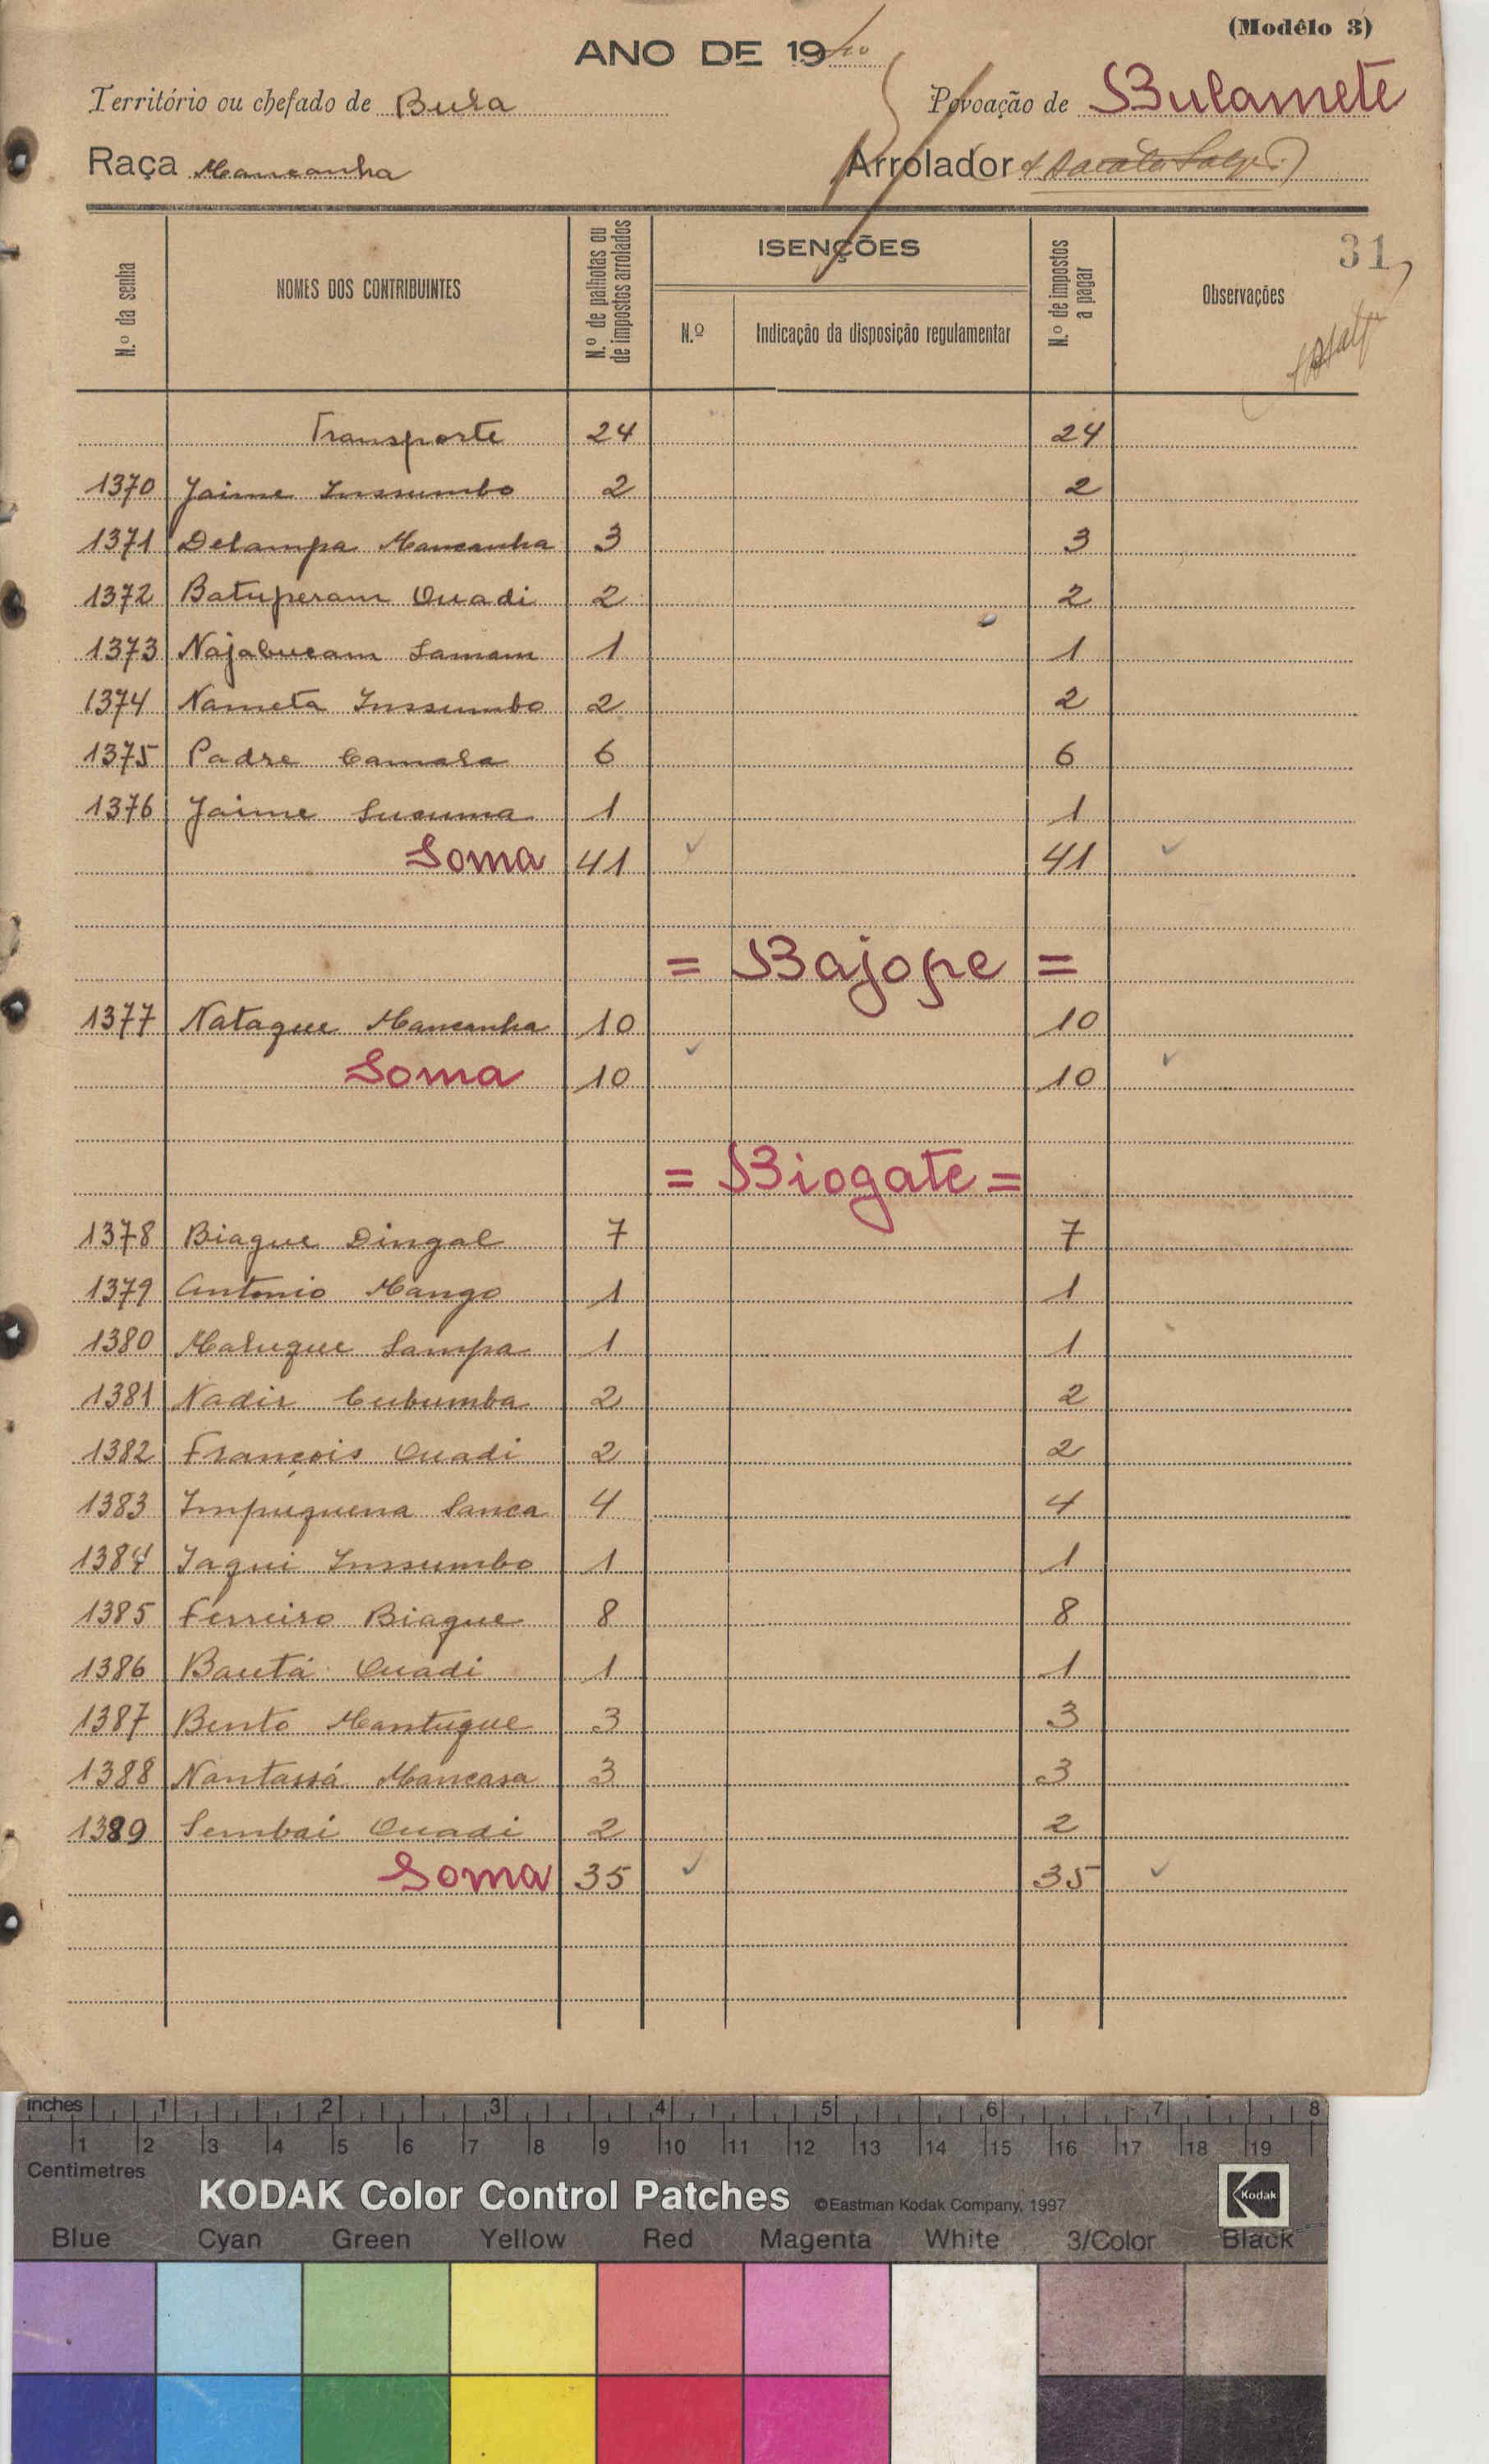 (Modêlo 3)
ANO DE 19
Território ou chefado de Bula Povoação de Bulamete
Raça Mancanha Arrolador
31
N.º da senha NOMES DOS CONTRIBUINTES N.º de palhotas ou de impostos arrolados ISENÇÕES N.º Indicação da disposição regulamentar N.º de impostos a pagar Observações
Transporte 24 24
1370 Jaime Inssumbo 2 2
1371 Delampa Mancanha 3 3
1372 Batuperam Quadi 2 2
1373 Najabucam Samam 1 1
1374 Nameta Inssumbo 2 2
1375 Padre Camala 6 6
1376 Jaime Sucuma 1 1
Soma 41 41
= Bajope =
1377 Nataque Mancanha 10 10
Soma 10 10
= Biogate =
1378 Biague Dingal 7 7
1379 Antonio Mango 1 1
1380 Maluque Sampa 1 1
1381 Nadir Cubumba 2 2
1382 François Quadi 2 2
1383 Impuquena Sanca 4 4
1384 Jaqui Inssumbo 1 1
1385 Ferreiro Biague 8 8
1386 Bautá Quadi 1 1
1387 Bento Mantuque 3 3
1388 Nantassá Mancasa 3 3
1389 Sembai Quadi 2 2
Soma 35 35
inches 1 2 3 4 5 6 7 8
1 2 3 4 5 6 7 8 9 10 11 12 13 14 15 16 17 18 19
Centimetres
KODAK Color Control Patches ©Eastman Kodak Company, 1997 Kodak
Blue Cyan Green Yellow Red Magenta White 3/Color Black